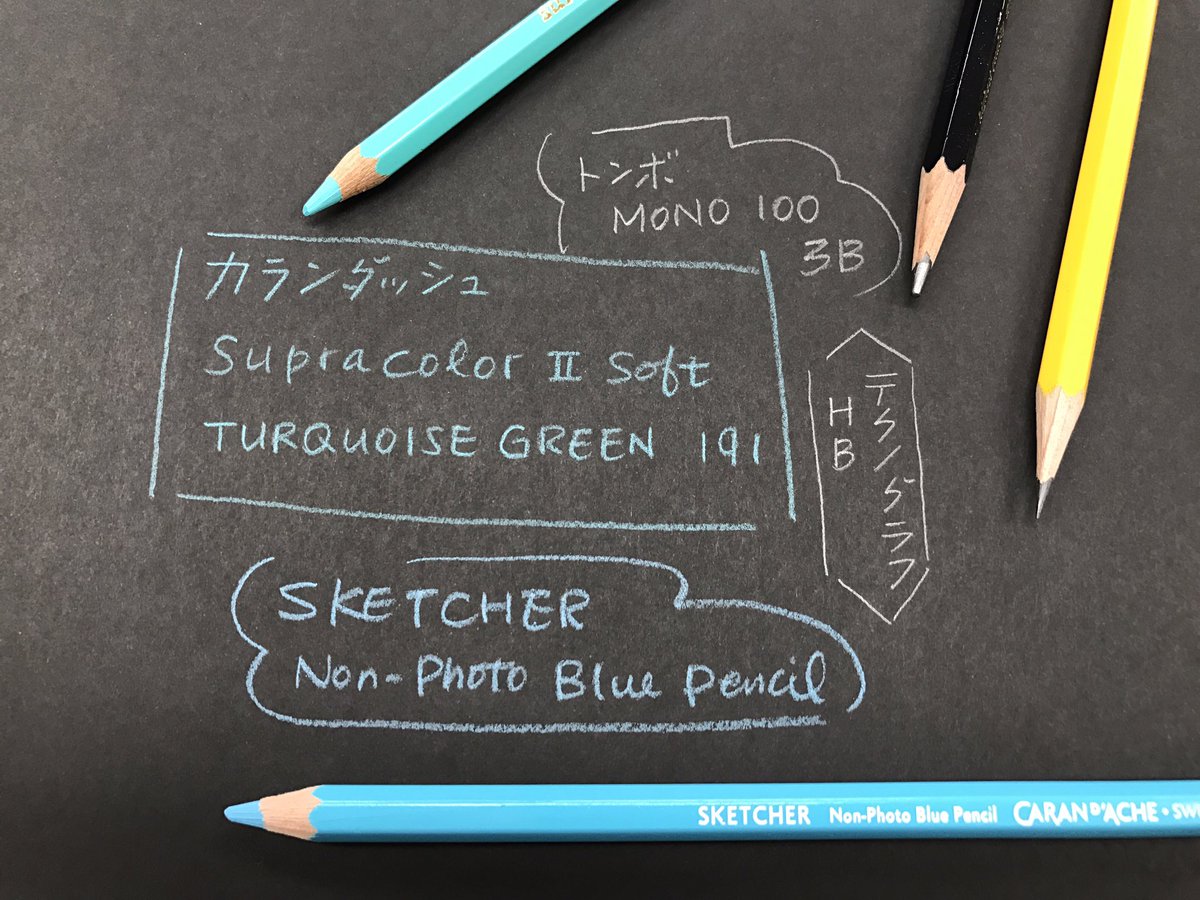 トンボ
MONO 100
3B
カランダッシュ
Supracolor II Soft
TURQUOISE GREEN 191
テクノグラフ
HB
SKETCHER
Non-Photo Blue Pencil
SKETCHER Non-Photo Blue Pencil CARAN D'ACHE